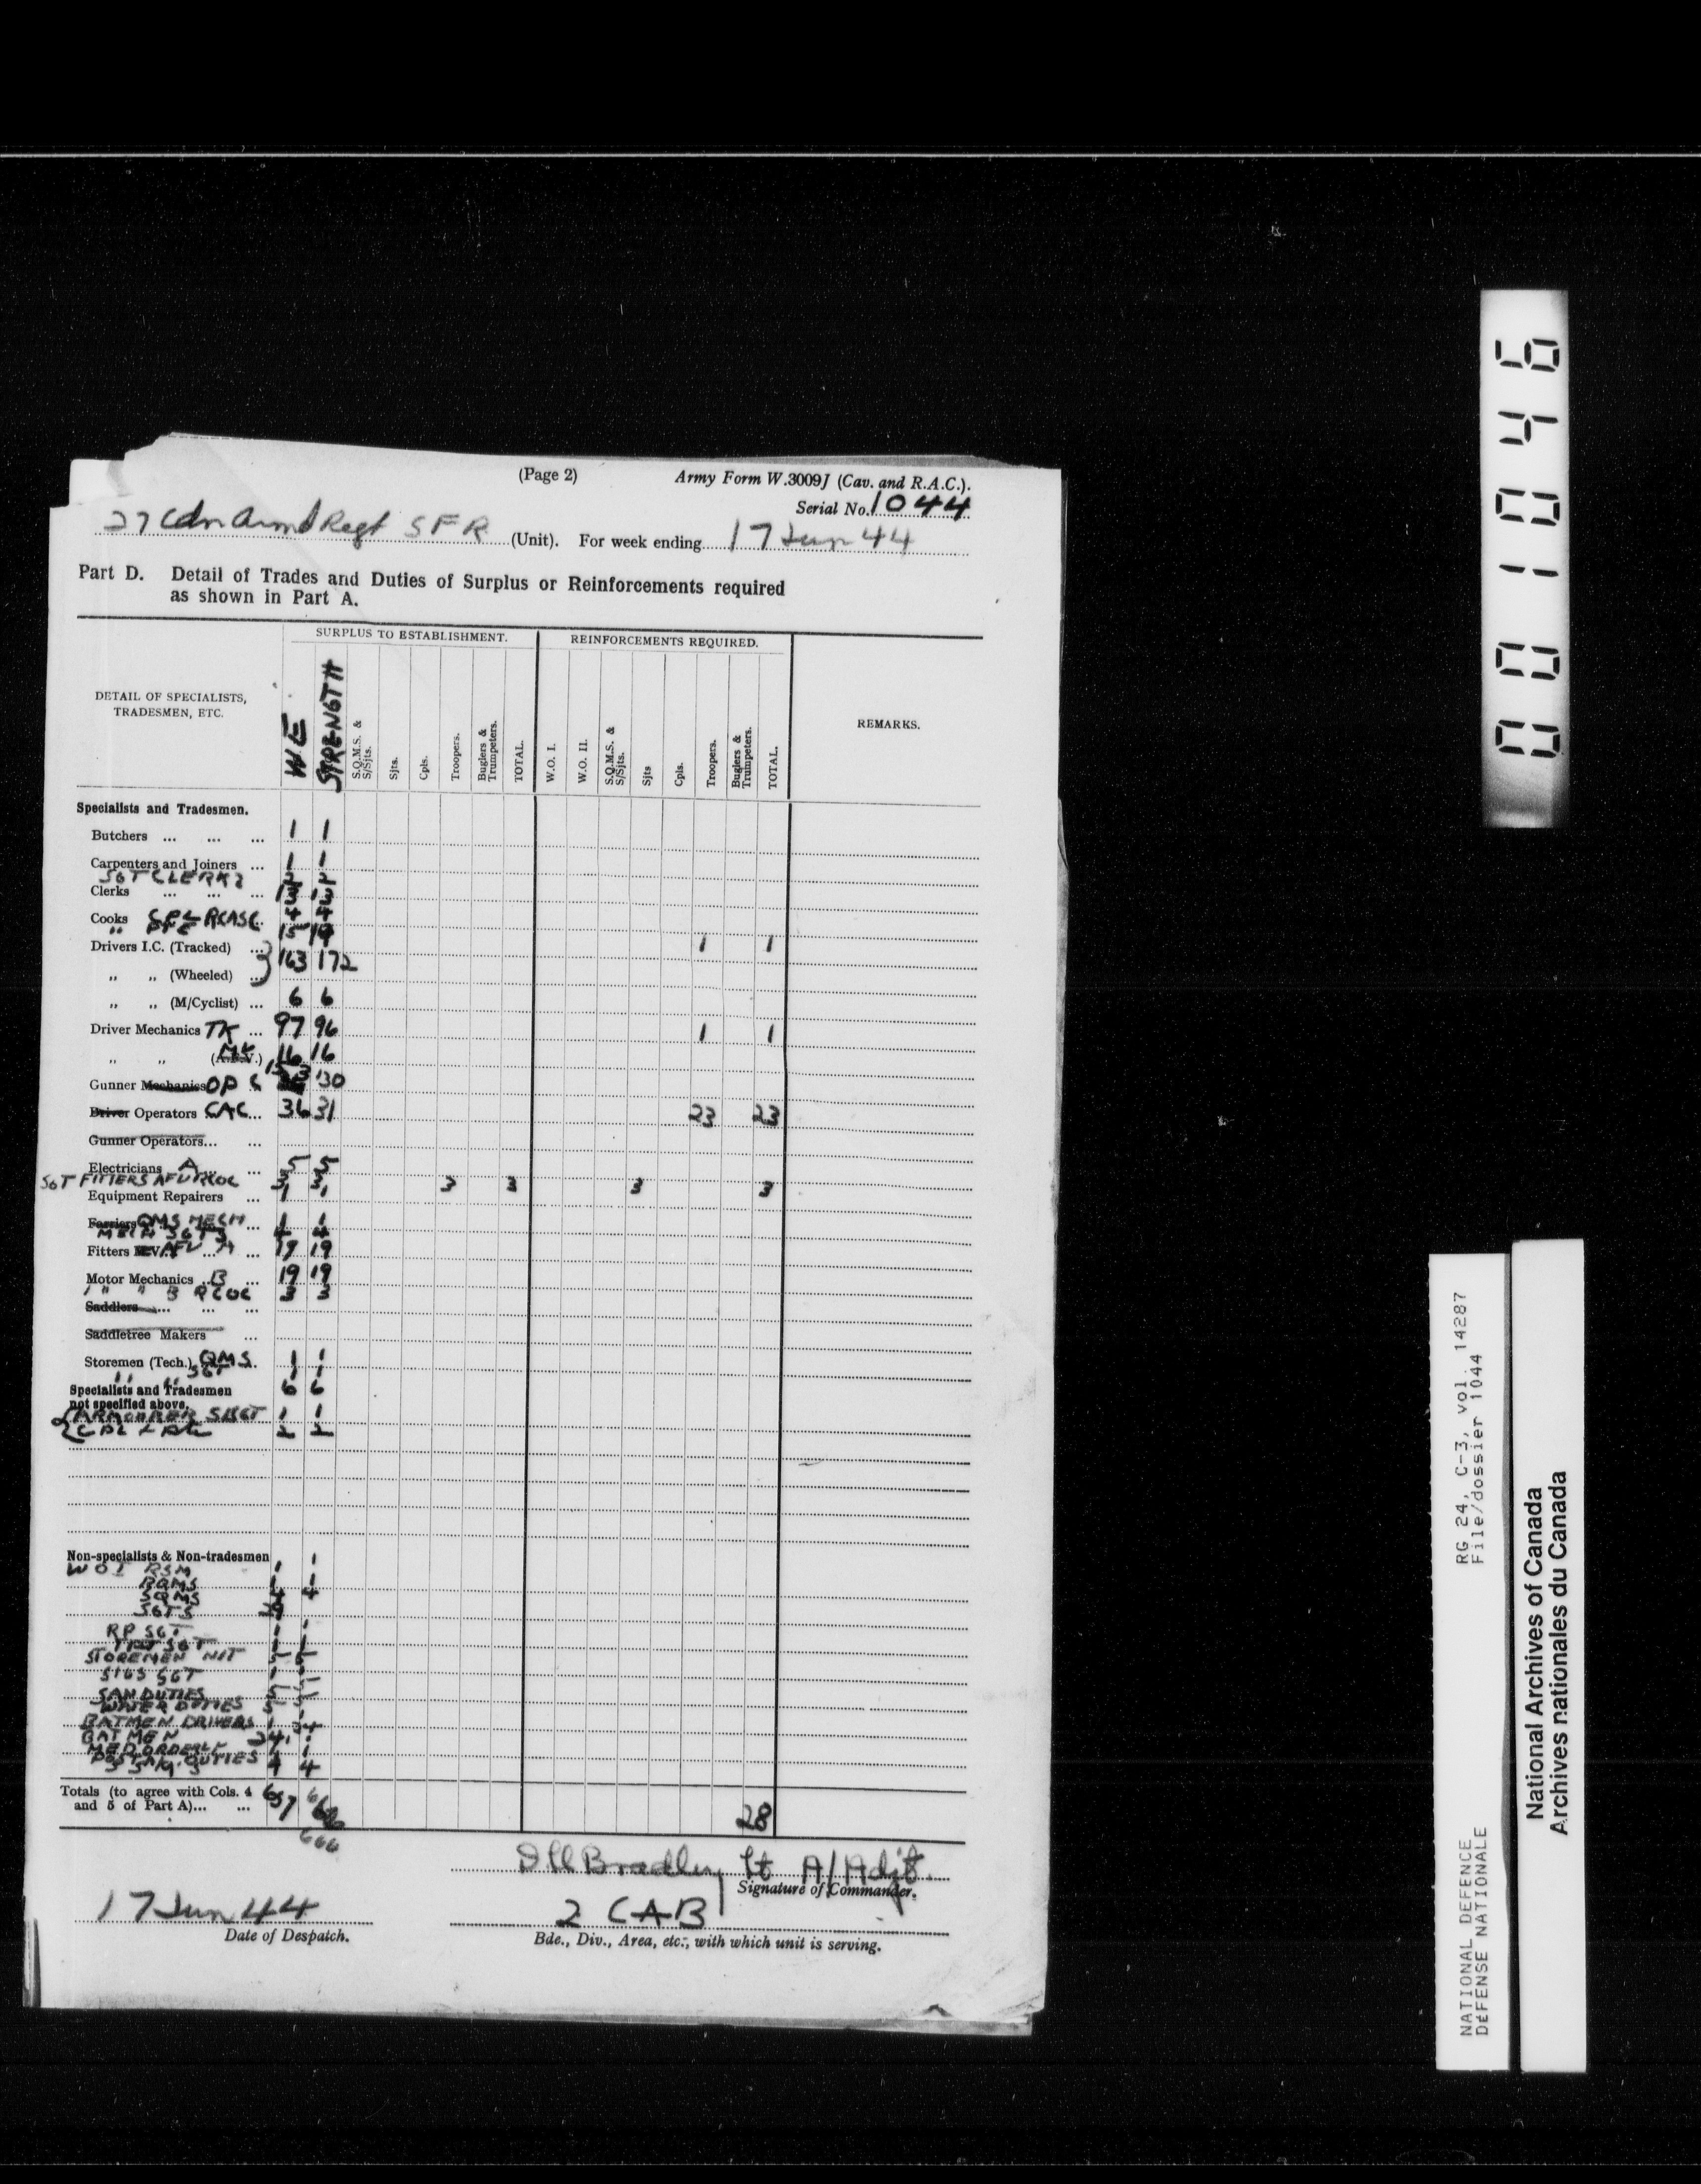 (Page 2) Army Form W.3009J (Cav. and R.A.C.).
Serial No. 1044
27 Cdn Armd Regt SFR (Unit). For week ending 17 Jun 44
Part D. Detail of Trades and Duties of Surplus or Reinforcements required
as shown in Part A.
SURPLUS TO ESTABLISHMENT. REINFORCEMENTS REQUIRED.
DETAIL OF SPECIALISTS, TRADESMEN, ETC. W E STRENGTH S.Q.M.S. & S/Sjts. Sjts. Cpls. Troopers. Buglers & Trumpeters. TOTAL. W.O. I. W.O. II. S.Q.M.S. & S/Sjts. Sjts Cpls. Troopers. Buglers & Trumpeters. TOTAL. REMARKS.
Specialists and Tradesmen.
Butchers ... ... ... 1 1
Carpenters and Joiners ... 1 1
SGT CLERKS 2 2
Clerks ... ... ... 13
Cooks CPL RCASC 4 4
" PTE 15 14
Drivers I.C. (Tracked) ... 163 172 1 1
„ „ (Wheeled) ...
„ „ (M/Cyclist) ... 6 6
Driver Mechanics TK ... 97 96 1 1
„ „ 16 16
Gunner Mechanics OP 130
Driver Operators CAC ... 36 31 23 23
Gunner Operators... ...
Electricians A ... 5 5
SGT FITTERS AFV RCOC 3 3 3 3 3 3
Equipment Repairers ... 1 1
Farriers QMS MECH ... 1 1
MECH SGTS 4 4
Fitters AFV A ... 19 19
Motor Mechanics B ... 19 19
" " B RCOC 3 3
Saddlers ... ... ...
Saddletree Makers ...
Storemen (Tech.) QMS 1 1
" " SGT 1 1
Specialists and Tradesmen 6 6
not specified above.
ARMOURER S/SGT 1 1
2 2
Non-specialists & Non-tradesmen
WO I RSM 1 1
RQMS 1 1
SQMS 4 4
SGTS 29
RP SGT 1 1
TPT SGT 1 1
STOREMEN NIT 5 5
SIGS SGT 1
SAN DUTIES 5 5
WATER DUTIES 5 5
BATMEN DRIVERS 1
BATMEN 24
MED ORDERLY 1 1
DUTIES 4 4
Totals (to agree with Cols. 4 657
and 5 of Part A)... ... 28
666
Bradley Lt A/Adjt.
Signature of Commander.
17 Jun 44 2 CAB
Date of Despatch. Bde., Div., Area, etc., with which unit is serving.
001046
RG 24, C-3, vol. 14287
File/dossier 1044
NATIONAL DEFENCE
DÉFENSE NATIONALE
National Archives of Canada
Archives nationales du Canada